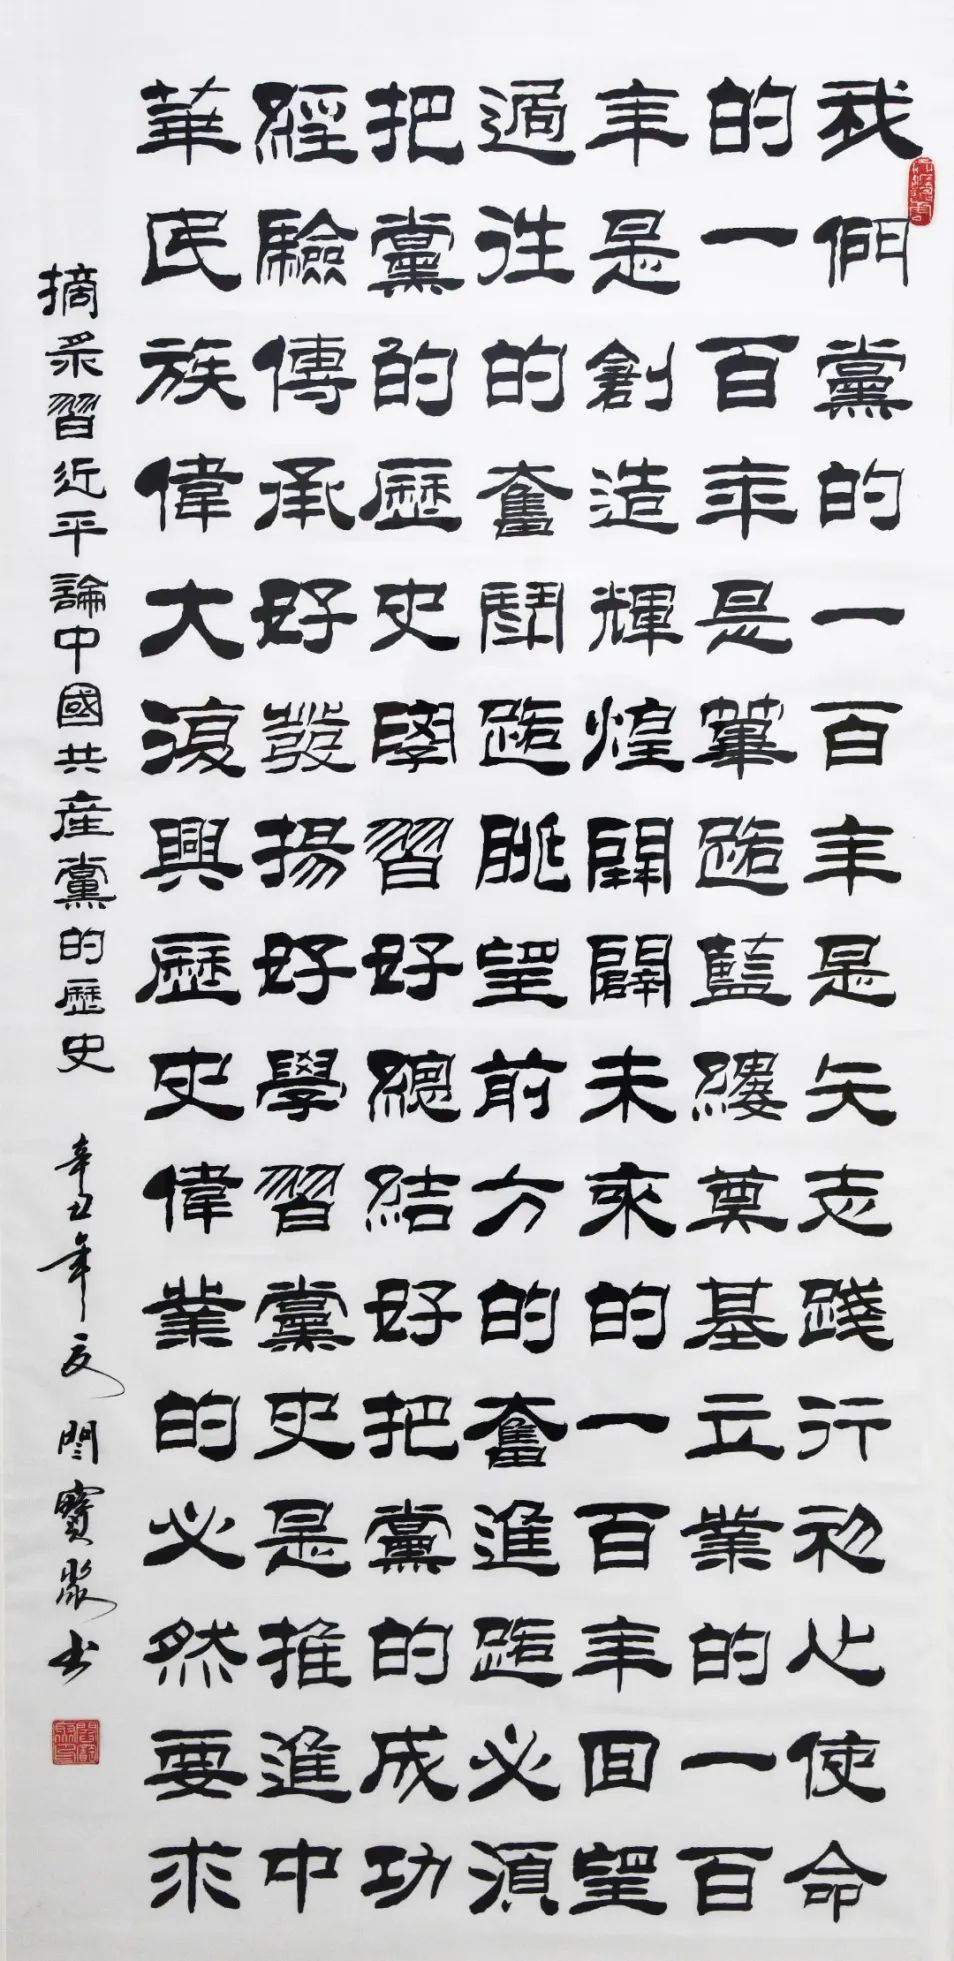 我們黨的一百年是矢志踐行初心使命
的一百年是篳路藍縷奠基立業的一百
年是創造輝煌開闢未來的一百年回望
過往的奮鬥路眺望前方的奮進路必須
把黨的歷史學習好總結好把黨的成功
經驗傳承好發揚好學習黨史是推進中
華民族偉大復興歷史偉業的必然要求
摘录習近平論中國共産黨的歷史 辛丑年夏 閆寶聚书